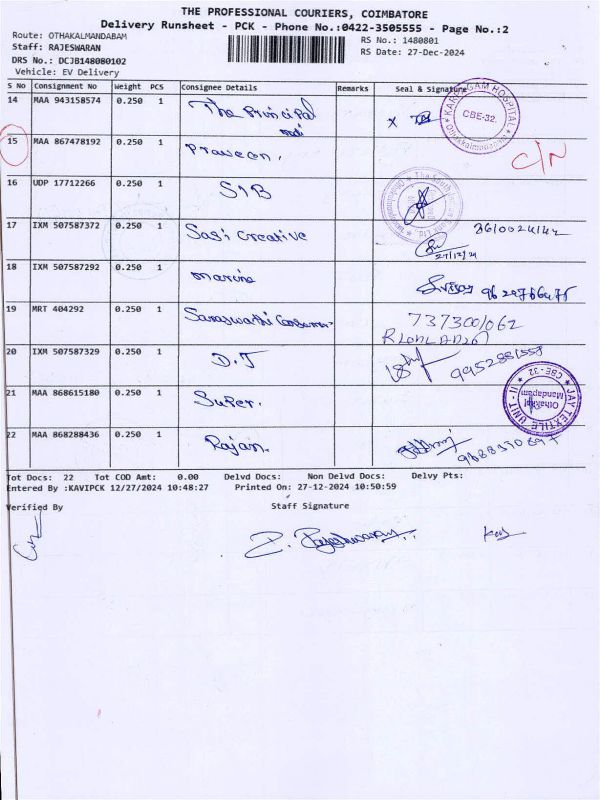 THE PROFESSIONAL COURIERS, COIMBATORE
Delivery Runsheet - PCK - Phone No.:0422-3505555 - Page No.:2
Route: OTHAKALMANDABAM
RS No.: 1480801
Staff: RAJESWARAN
RS Date: 27-Dec-2024
DRS No.: DCJB148080102
Vehicle: EV Delivery
S No Consignment No Weight PCS Consignee Details Remarks Seal & Signature
14 MAA 943158574 0.250 1 The Principal
KARPAGAM HOSPITAL CBE-32.
15 MAA 867478192 0.250 1 Praveen. C/N
16 UDP 17712266 0.250 1 SIB
17 IXM 507587372 0.250 1 Sasi Creative
27/12/24
18 IXM 507587292 0.250 1 Marine
19 MRT 404292 0.250 1 Saraswathi
20 IXM 507587329 0.250 1 D.J
21 MAA 868615180 0.250 1 Super.
JAY TEXTILE UNIT - II CBE - 32 Othakkal Mandapam
22 MAA 868288436 0.250 1 Rajan.
Tot Docs: 22 Tot COD Amt: 0.00 Delvd Docs: Non Delvd Docs: Delvy Pts:
Entered By :KAVIPCK 12/27/2024 10:48:27 Printed On: 27-12-2024 10:50:59
Verified By Staff Signature